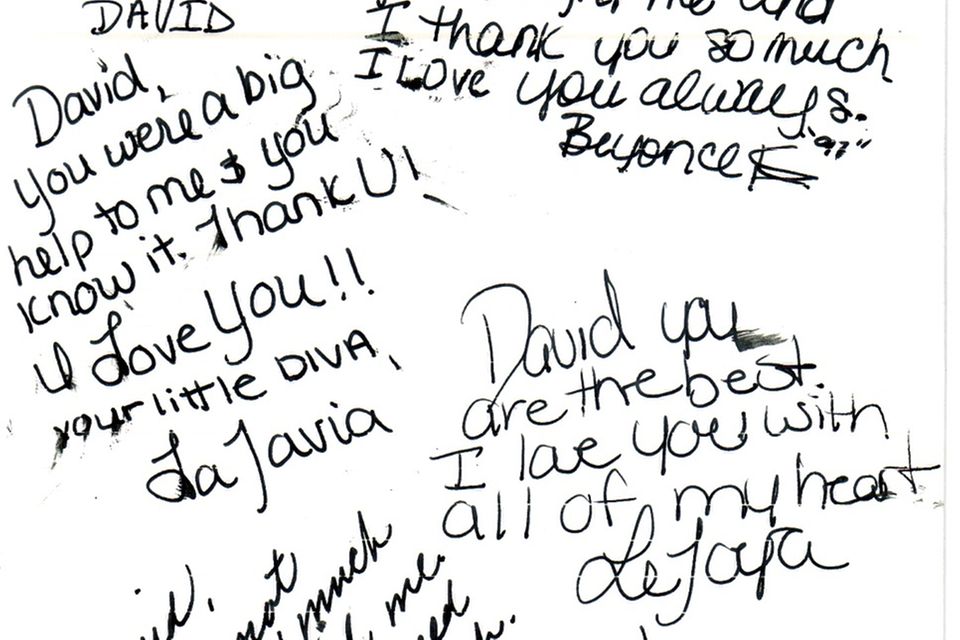 DAVID
I thank you so much
I Love you always.
Beyonce "97"
David,
you were a big
help to me & you
know it. Thank U!
I Love You!!
your little DIVA,
LaTavia
David you
are the best.
I love you with
all of my heart
LeToya
not
much
me.